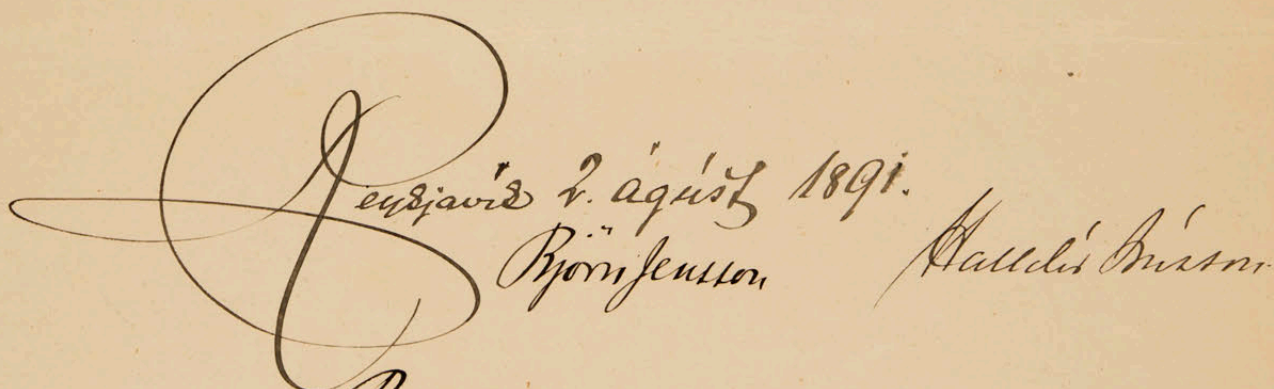 Reykjavík 2. ágúst 1891.
Björn Jensson Halldór